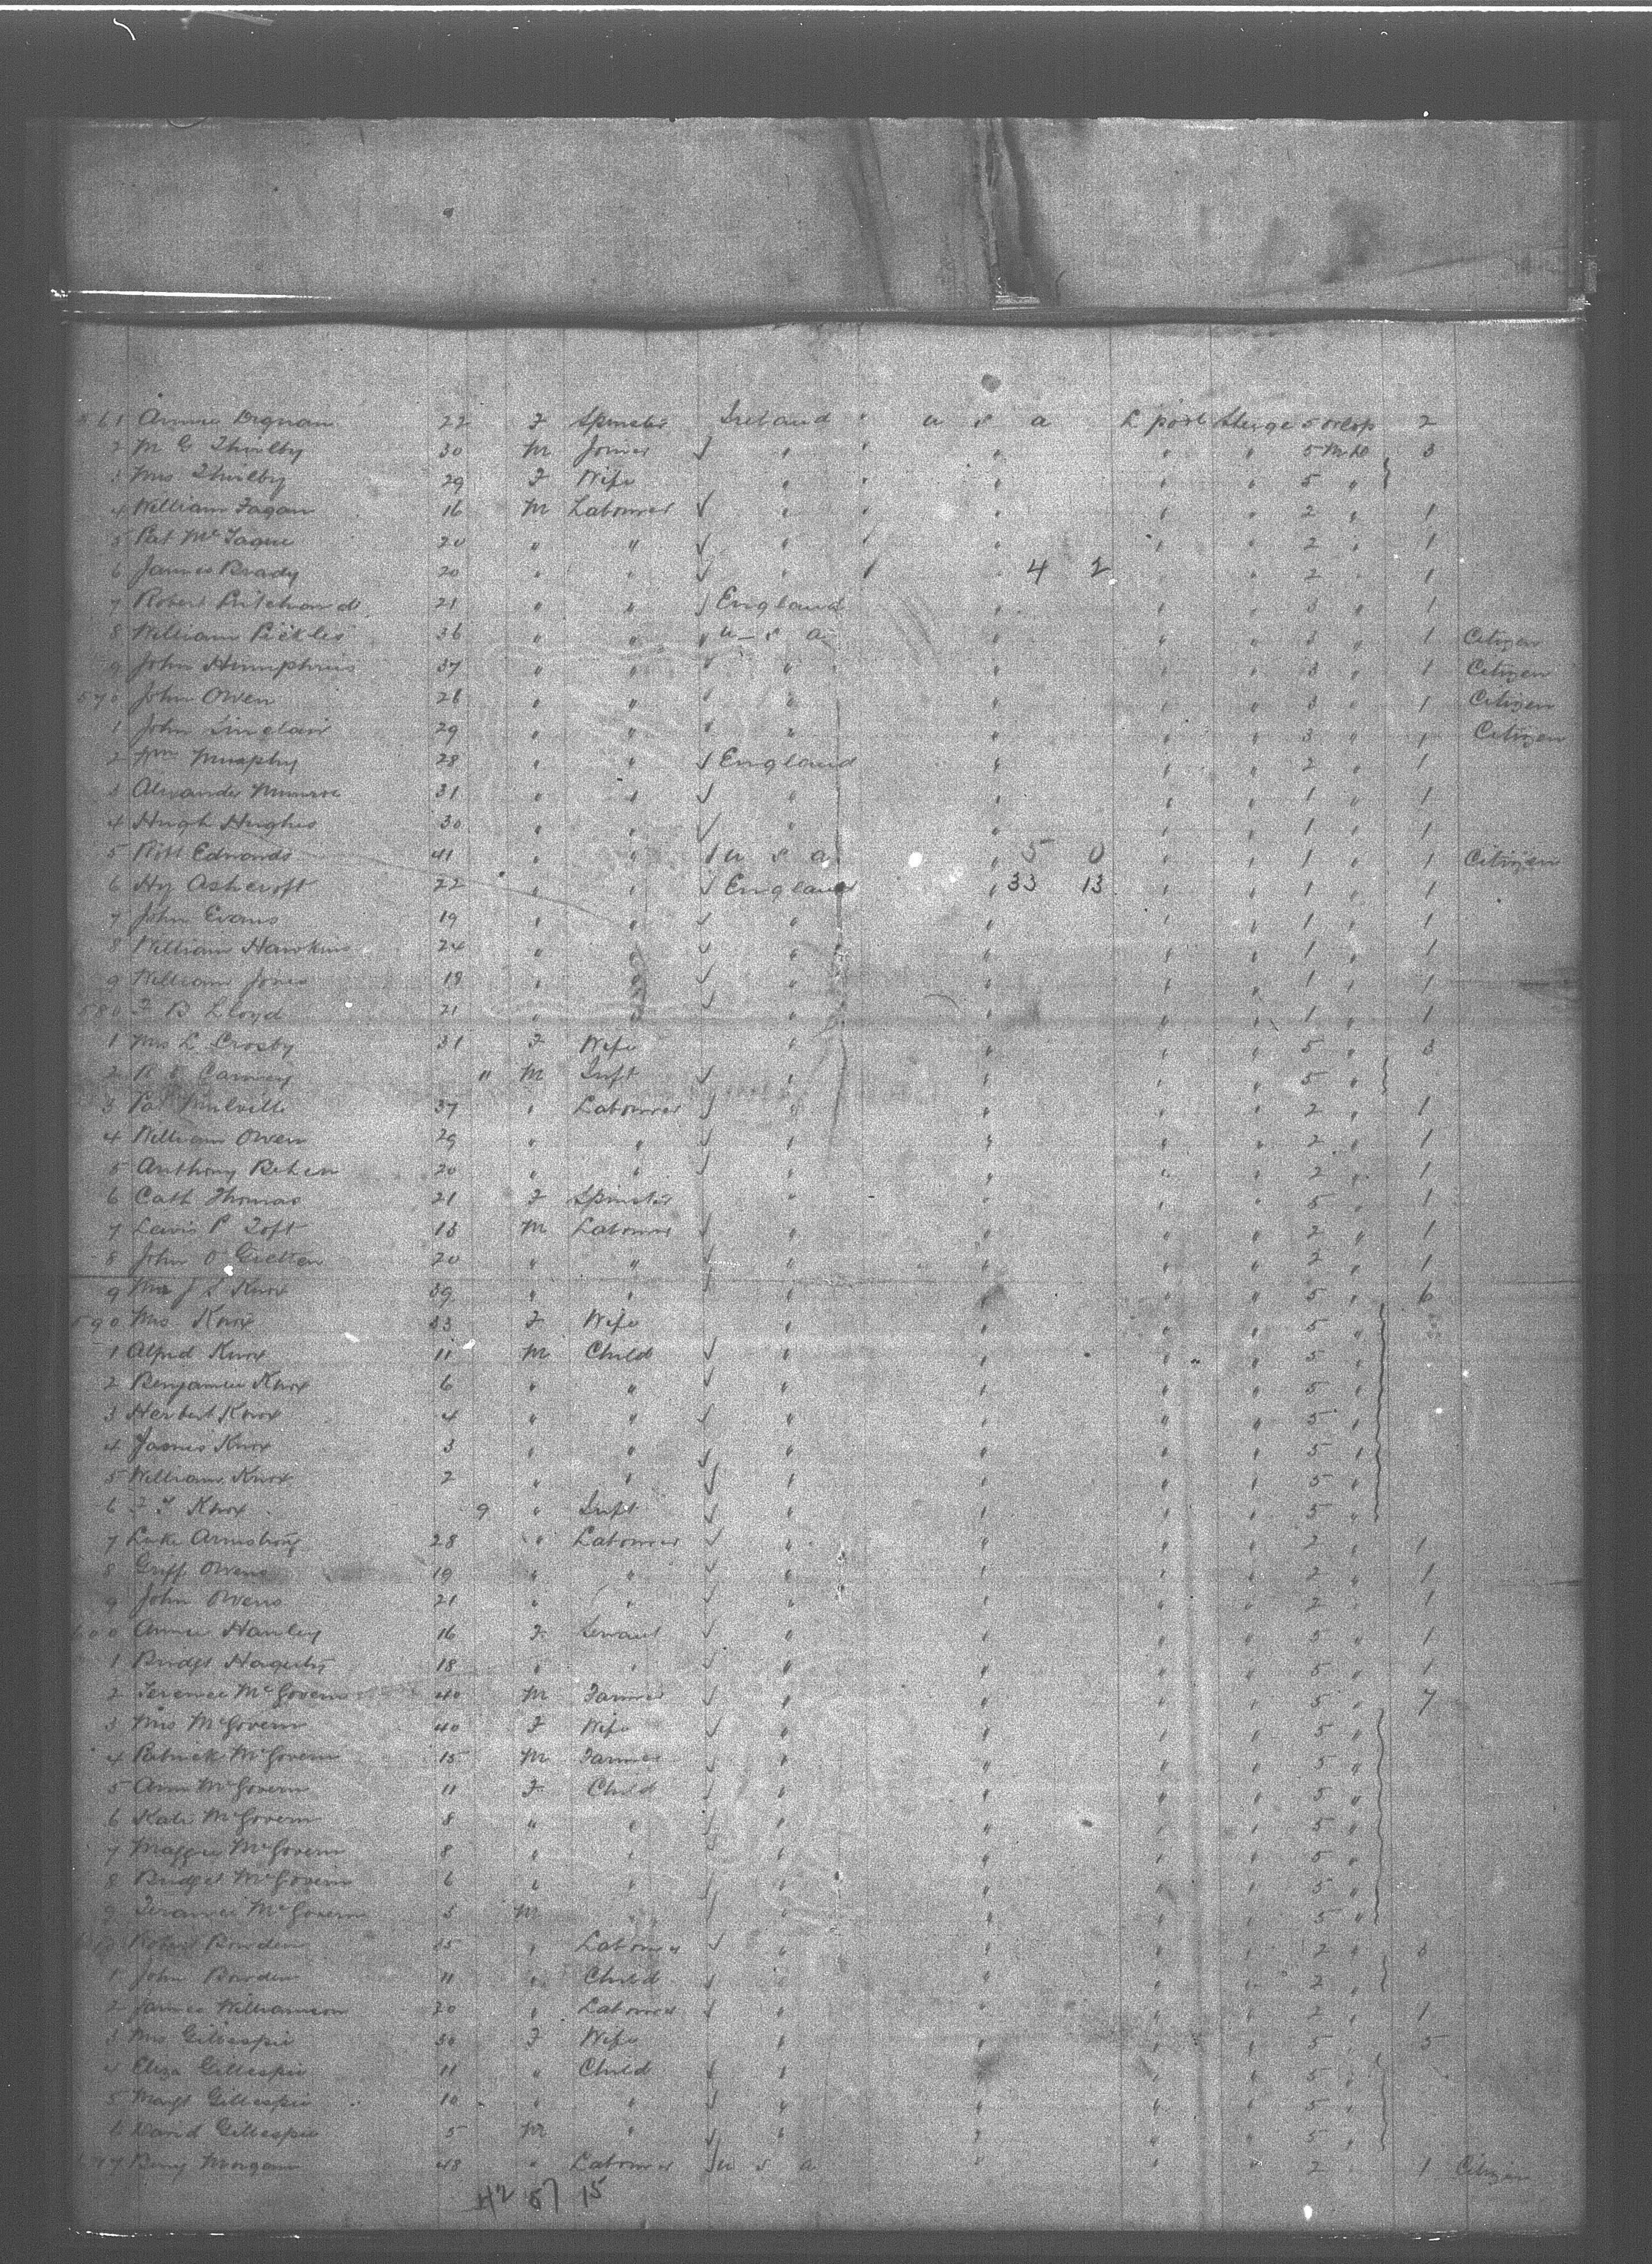 561 Annie Dignan 22 F Spinster Ireland " u s a L pool Sterge 5 Orlop 2
2 M E Thirlby 30 M Joiner " " " " " 5 M D 3
3 Mrs Thirlby 29 F Wife " " " " " 5 "
4 William Fagan 16 M Labourer " " " " " 2 " 1
5 Pat McTague 20 " " " " " " " 2 " 1
6 James Brady 20 " " " " " 4 2 " " 2 " 1
7 Robert Pritchard 21 " " England " " " 3 " 1
8 William Pickles 36 " " u s a " " " 3 " 1 Citizen
9 John Humphries 37 " " " " " " 3 " 1 Citizen
570 John Owen 28 " " " " " " 3 " 1 Citizen
1 John Sinclair 29 " " " " " " 3 " 1 Citizen
2 Wm Murphy 28 " " England " " " 2 " 1
3 Alexander Munroe 31 " " " " " " 1 " 1
4 Hugh Hughes 30 " " " " " " 1 " 1
5 Robt Edwards 41 " " u s a " 5 0 " " 1 " 1 Citizen
6 Hy Ashcroft 22 " " England " 33 13 " " 1 " 1
7 John Evans 19 " " " " " " 1 " 1
8 William Hawkins 24 " " " " " " 1 " 1
9 William Jones 19 " " " " " " 1 " 1
580 F B Lloyd 21 " " " " " " 1 " 1
1 Mrs L Crosby 31 F Wife " " " " 5 " 3
2 R E Carney 11 M Inft " " " " 5 "
3 Pat Mulville 37 " Labourer " " " " 2 " 1
4 William Owen 29 " " " " " " 2 " 1
5 Anthony 20 " " " " " " 2 " 1
6 Cath Thomas 21 F Spinster " " " " 5 " 1
7 Lewis P Toft 13 M Labourer " " " " 2 " 1
8 John O 20 " " " " " " 2 " 1
9 Mr J S Knox 39 " " " " " " 5 " 6
590 Mrs Knox 33 F Wife " " " " 5 "
1 Alfred Knox 11 M Child " " " " 5 "
2 Benjamin Knox 6 " " " " " " 5 "
3 Herbert Knox 4 " " " " " " 5 "
4 James Knox 3 " " " " " " 5 "
5 William Knox 2 " " " " " " 5 "
6 Knox 9 " Inft " " " " 5 "
7 Luke Armstrong 28 " Labourer " " " " 2 " 1
8 Griff Owens 19 " " " " " " 2 " 1
9 John Owens 21 " " " " " " 2 " 1
600 Annie Hanley 16 F Servant " " " " 5 " 1
1 Bridgt Hagerty 18 " " " " " " 5 " 1
2 Terence McGovern 40 M Farmer " " " " 5 " 7
3 Mrs McGovern 40 F Wife " " " " 5 "
4 Patrick McGovern 15 M Farmer " " " " 5 "
5 Ann McGovern 11 F Child " " " " 5 "
6 Kate McGovern 8 " " " " " " 5 "
7 Maggie McGovern 8 " " " " " " 5 "
8 Bridget McGovern 6 " " " " " " 5 "
9 Terance McGovern 5 M " " " " " 5 "
610 Robert Bowden 35 " Labourer " " " " 2 " 3
1 John Bowden 11 " Child " " " " 2 "
2 James Williamson 30 " Labourer " " " " 2 " 1
3 Mrs Gillespie 30 F Wife " " " " 5 " 5
4 Eliza Gillespie 11 " Child " " " " 5 "
5 Margt Gillespie 10 " " " " " " 5 "
6 David Gillespie 5 M " " " " " 5 "
617 Benj Morgan 48 " Labourer u s a " " " 2 1 Citizen
42 57 15